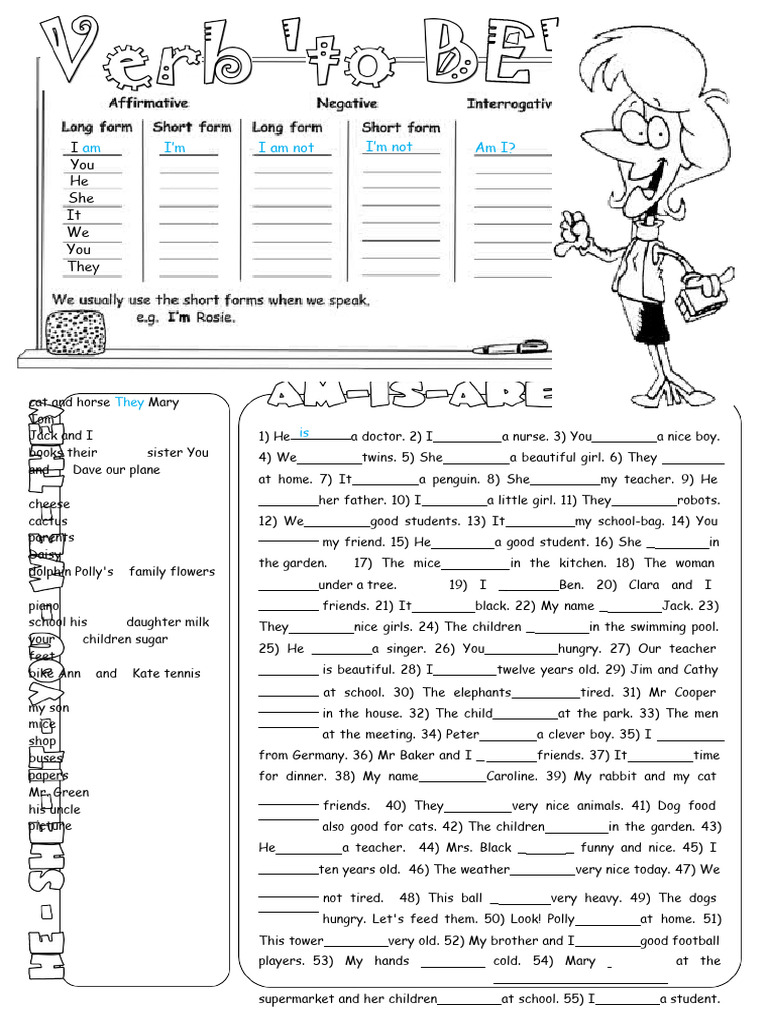 Verb 'to BE'
Affirmative Negative Interrogativ
Long form Short form Long form Short form
I am I'm I am not I'm not Am I?
You
He
She
It
We
You
They
We usually use the short forms when we speak,
e.g. I'm Rosie.
AM-IS-ARE
HE - SHE - IT - YOU - WE - THEY
cat and horse They Mary
Tom
Jack and I
books their sister You
and Dave our plane
cheese
cactus
parents
Daisy
dolphin Polly's family flowers
piano
school his daughter milk
your children sugar
feet
bike Ann and Kate tennis
my son
mice
shop
buses
papers
Mr. Green
his uncle
picture
1) He is a doctor. 2) I________a nurse. 3) You________a nice boy.
4) We________twins. 5) She________a beautiful girl. 6) They ________
at home. 7) It________a penguin. 8) She________my teacher. 9) He
________her father. 10) I________a little girl. 11) They________robots.
12) We________good students. 13) It________my school-bag. 14) You
________ my friend. 15) He________a good student. 16) She ________in
the garden. 17) The mice________in the kitchen. 18) The woman
________under a tree. 19) I ________Ben. 20) Clara and I
________ friends. 21) It________black. 22) My name ________Jack. 23)
They________nice girls. 24) The children ________in the swimming pool.
25) He ________a singer. 26) You________hungry. 27) Our teacher
________ is beautiful. 28) I________twelve years old. 29) Jim and Cathy
________ at school. 30) The elephants________tired. 31) Mr Cooper
________ in the house. 32) The child________at the park. 33) The men
________ at the meeting. 34) Peter________a clever boy. 35) I ________
from Germany. 36) Mr Baker and I ________friends. 37) It________time
for dinner. 38) My name________Caroline. 39) My rabbit and my cat
________ friends. 40) They________very nice animals. 41) Dog food
________ also good for cats. 42) The children________in the garden. 43)
He________a teacher. 44) Mrs. Black ________ funny and nice. 45) I
________ten years old. 46) The weather________very nice today. 47) We
________ not tired. 48) This ball ________very heavy. 49) The dogs
________ hungry. Let's feed them. 50) Look! Polly________at home. 51)
This tower________very old. 52) My brother and I________good football
players. 53) My hands ________ cold. 54) Mary ________ at the
supermarket and her children________at school. 55) I________a student.